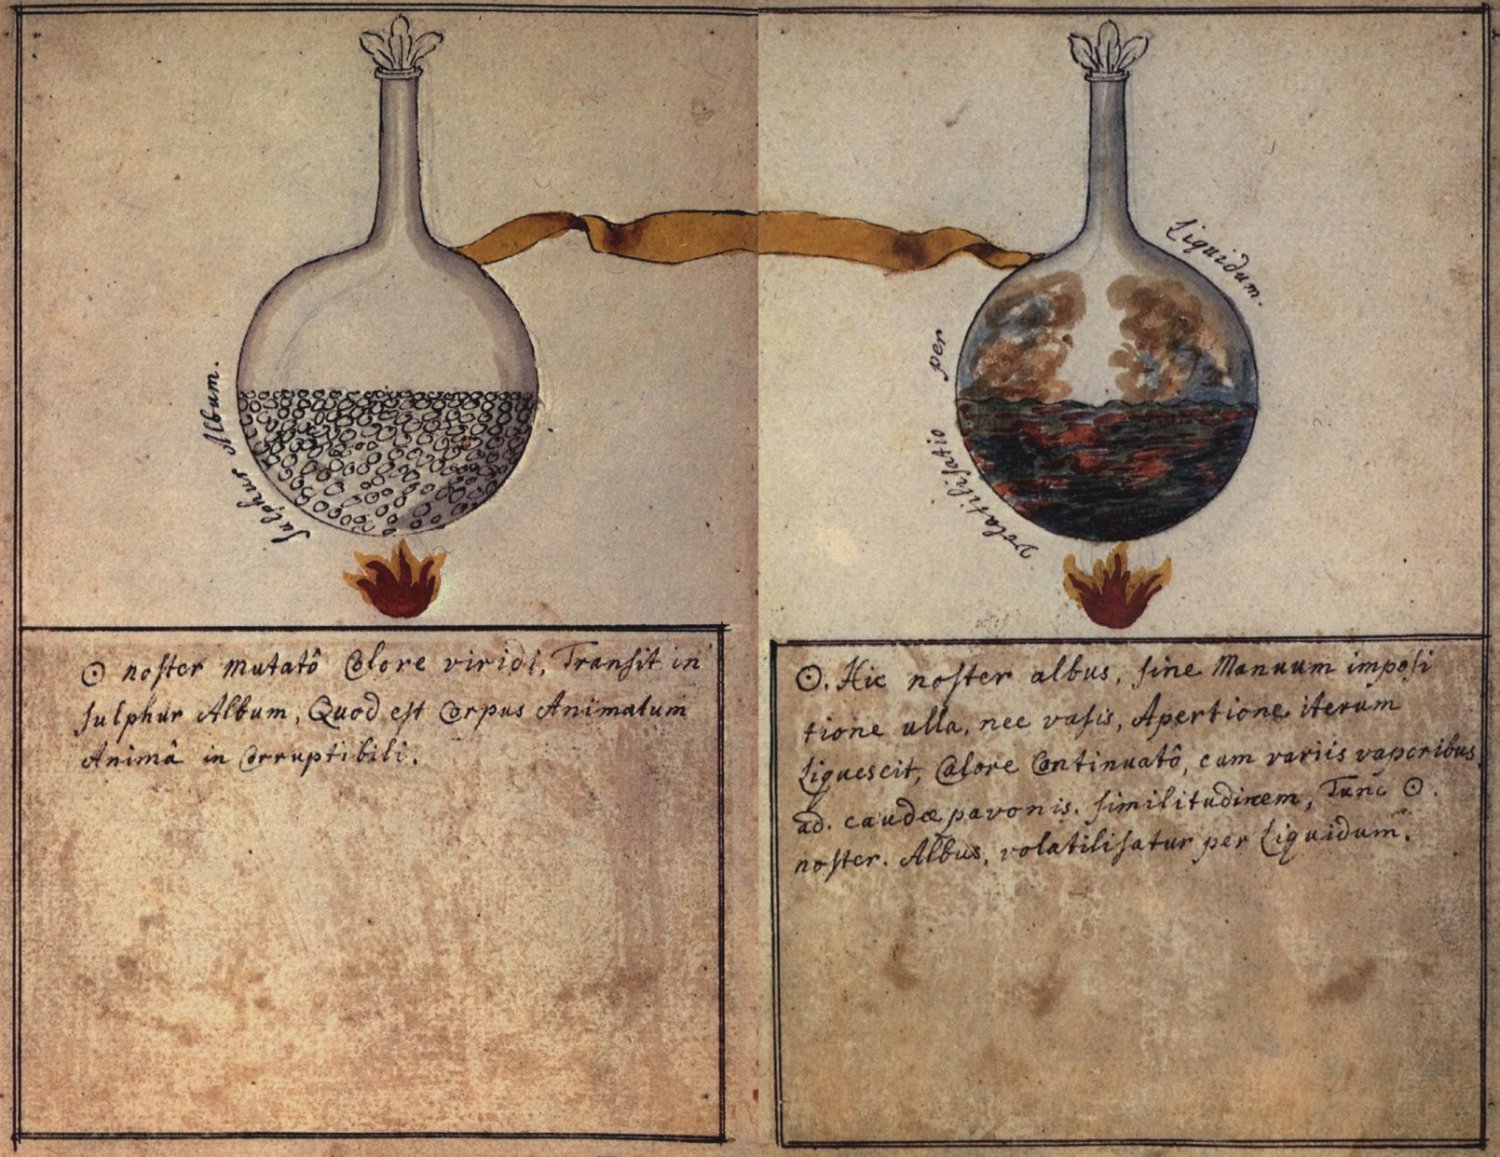 Sulphur Album.
☉ noster mutatô Colore viridi, Transit in
sulphur Album, Quod est Corpus Animatum
Animâ in Corruptibili.
volatilisatio per Liquidum.
☉. Hic noster albus, sine Manuum imposi
tione ulla, nec vasis, Apertione iterum
Liquescit, Calore Continuatô, cum variis vaporibus
ad. caudæ pavonis. similitudinem, Tunc ☉.
noster. Albus, volatilisatur per Liquidum.